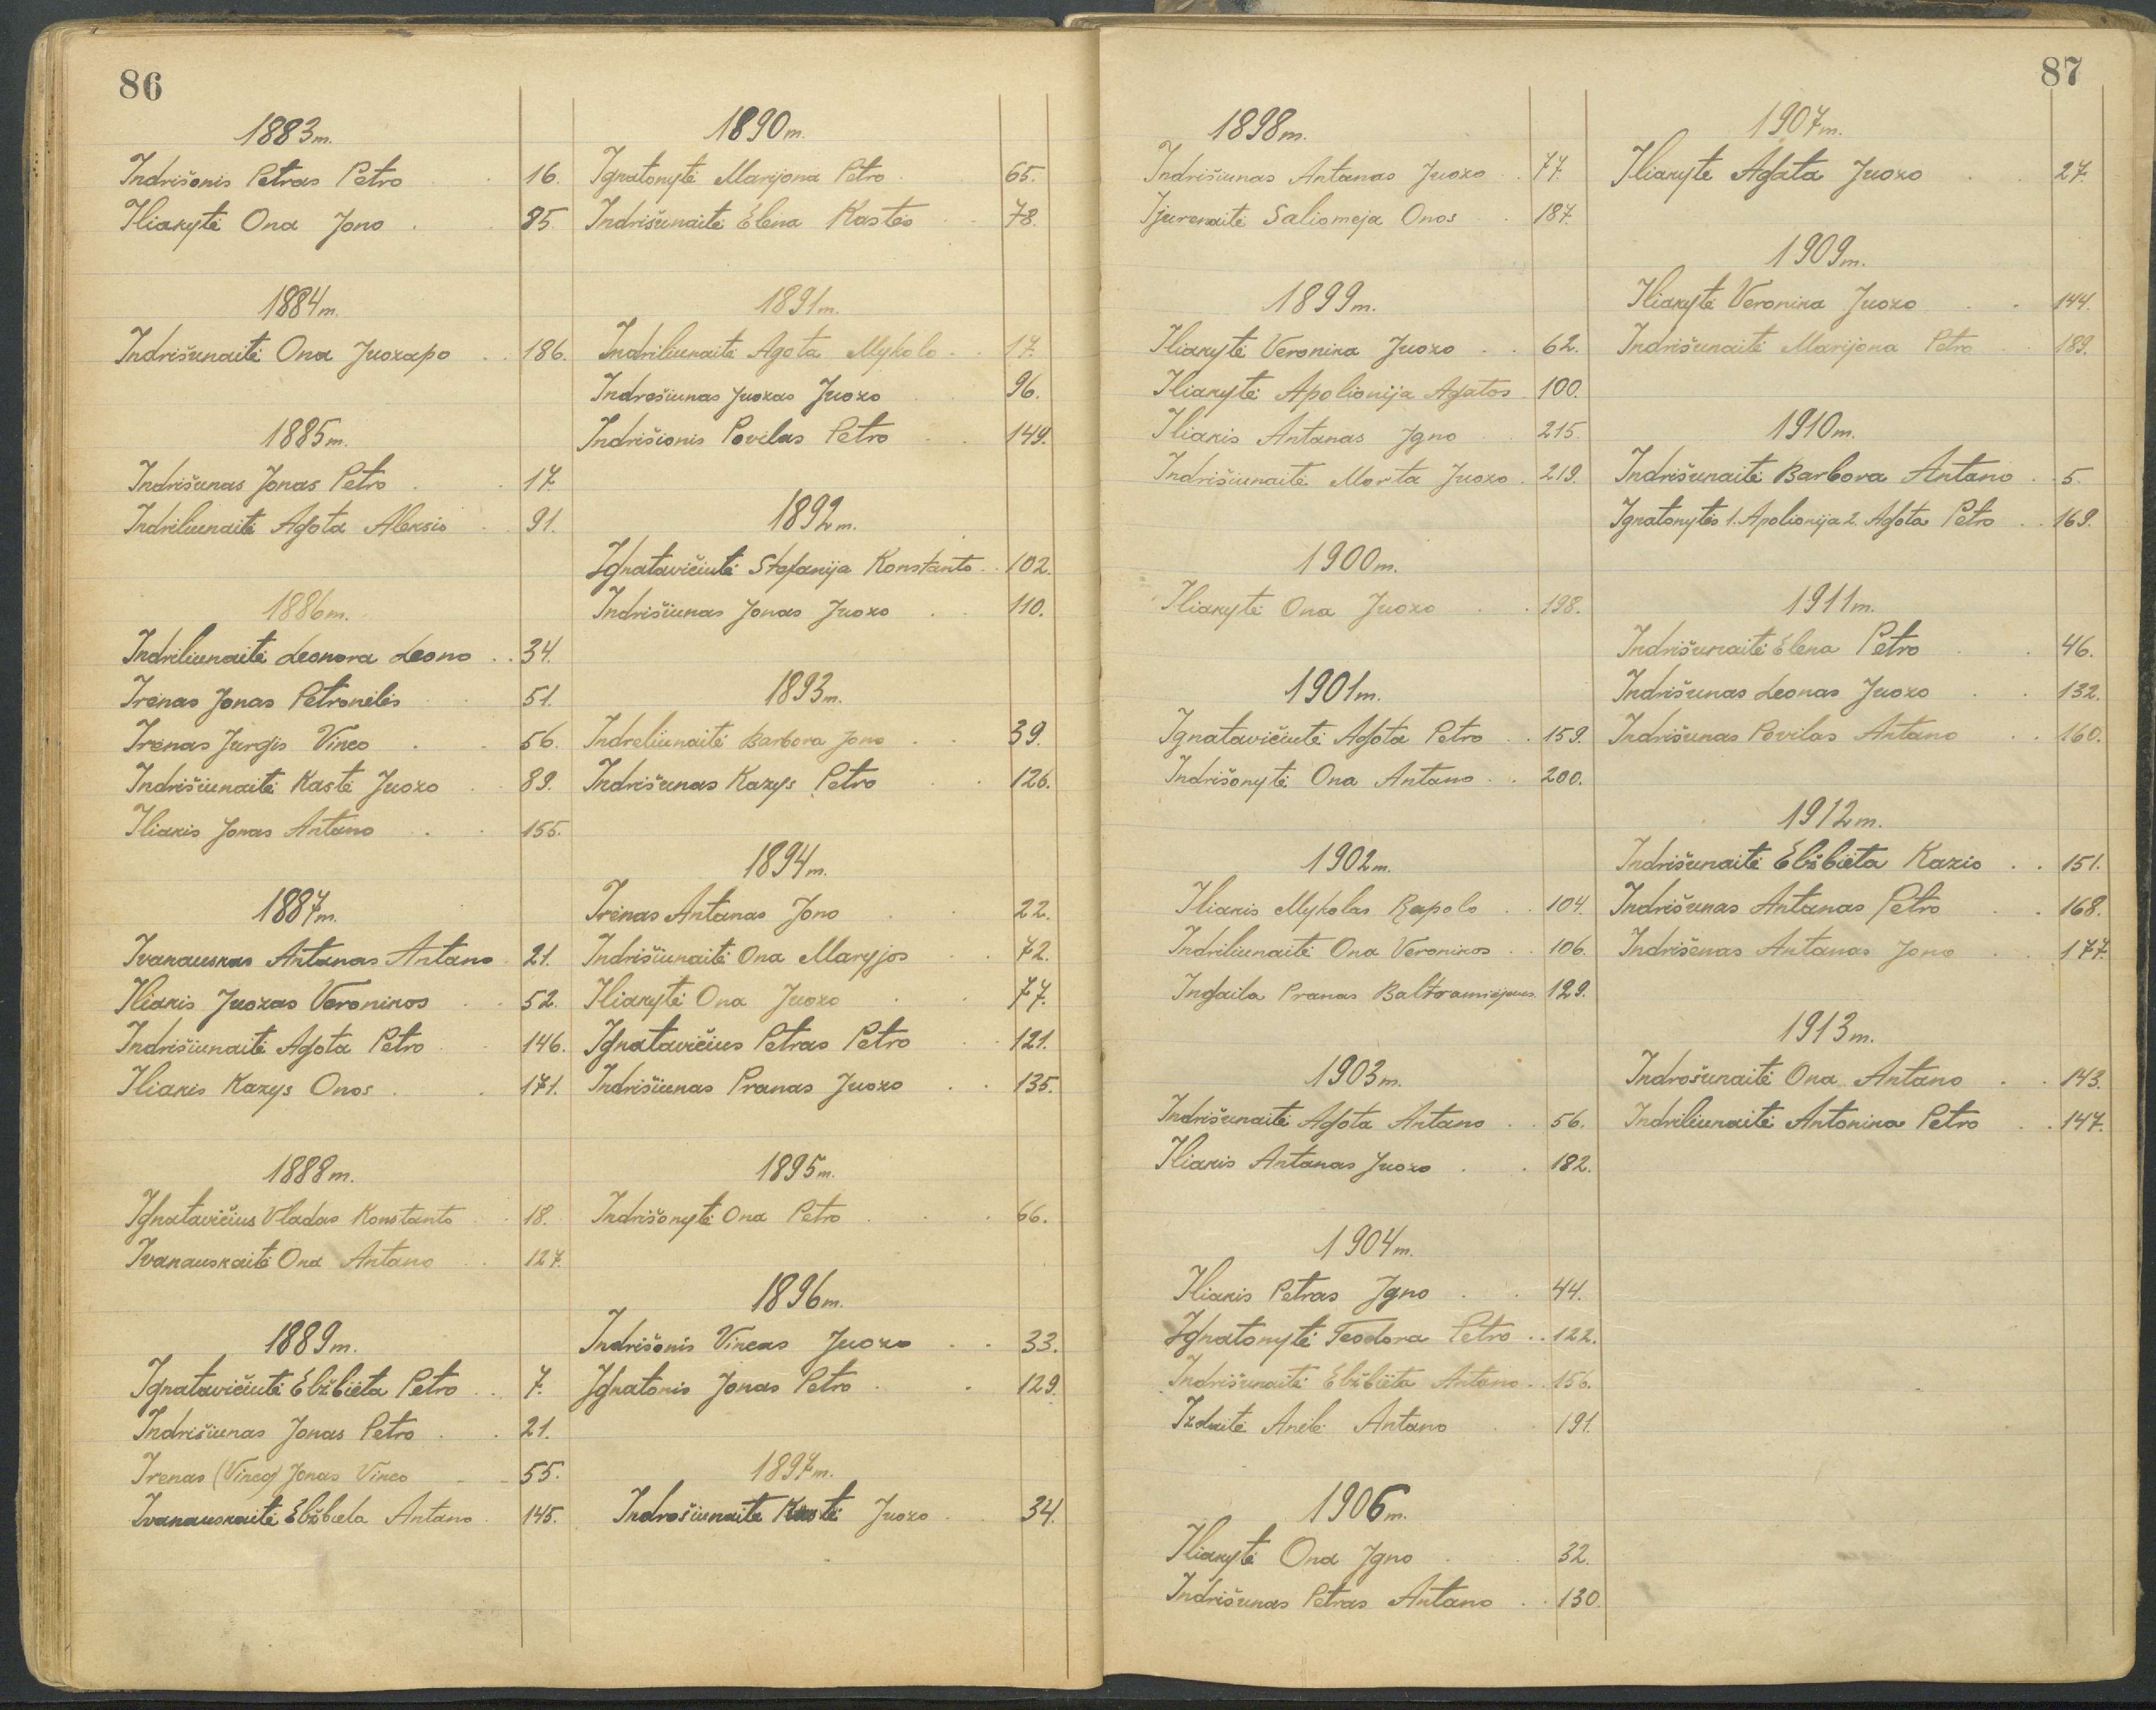 86
1883m.
Indrišonis Petras Petro . . 16.
Iliakytė Ona Jono . . 85.
1884m.
Indrišunaitė Ona Juozapo . . 186.
1885m.
Indrišunas Jonas Petro . . 17.
Indriliunaitė Agota Aleksio . . 91.
1886m.
Indriliunaitė Leonora Leono . . 34.
Irėnas Jonas Petronėlės . . 51.
Irėnas Jurgis Vinco . . 56.
Indrišiunaitė Kastė Juozo . . 89.
Iliakis Jonas Antano . . 155.
1887m.
Ivanauskas Antanas Antano . 21.
Iliakis Juozas Veronikos . . 52.
Indrišiunaitė Agota Petro . . 146.
Iliakis Kazys Onos . . 171.
1888m.
Ignatavičius Vladas Konstanto . . 18.
Ivanauskaitė Ona Antano . . 127.
1889m.
Ignatavičiutė Elžbieta Petro . . 7.
Indrišiunas Jonas Petro . . 21.
Irenas (Vinco) Jonas Vinco . . 55.
Ivanauskaitė Elžbieta Antano . 145.
1890m.
Ignatonytė Marijona Petro . 65.
Indrišunaitė Elena Kastės . . 78.
1891m.
Indriliunaitė Agota Mykolo . . 17.
Indrešiunas Juozas Juozo . . 96.
Indrišionis Povilas Petro . . 149.
1892m.
Ignatavičiutė Stefanija Konstanto . . 102.
Indrišiunas Jonas Juozo . . 110.
1893m.
Indreliunaitė Barbora Jono . . 39.
Indrišunas Kazys Petro . . 126.
1894m.
Irėnas Antanas Jono . . 22.
Indrišiunaitė Ona Maryjos . . 72.
Iliakytė Ona Juozo . . 77.
Ignatavičius Petras Petro . . 121.
Indrišiunas Pranas Juozo . . 135.
1895m.
Indrišonytė Ona Petro . . . 66.
1896m.
Indrišonis Vincas Juozo . . 33.
Ignatonis Jonas Petro . . 129.
1897m.
Indrošiunaitė Kastė Juozo . . 34.
87
1898m.
Indrišiunas Antanas Juozo . . 77.
Ijurenaitė Saliomeja Onos . . 187.
1899m.
Iliakytė Veronika Juozo . . 62.
Iliakytė Apolionija Agatos . 100.
Iliakis Antanas Igno . . 215.
Indrišiunaitė Morta Juozo . 219.
1900m.
Iliakytė Ona Juozo . . 198.
1901m.
Ignatavičiutė Agota Petro . . 159.
Indrišonytė Ona Antano . . 200.
1902m.
Iliakis Mykolas Rapolo . . 104.
Indriliunaitė Ona Veronikos . . 106.
Ingaila Pranas 129.
1903m.
Indrišunaitė Agota Antano . . 56.
Iliakis Antanas Juozo . . 182.
1904m.
Iliakis Petras Igno . . 44.
Ignatonytė Teodora Petro . . 122.
Indrišunaitė Elžbieta Antano . . 156.
Izdaitė Anelė Antano . . 191.
1906m.
Iliakytė Ona Igno . . 32.
Indrišunas Petras Antano . . 130.
1907m.
Iliakytė Agata Juozo . . 27.
1909m.
Iliakytė Veronika Juozo . . 144.
Indrišunaitė Marijona Petro . 189.
1910m.
Indrišunaitė Barbora Antano . . 5.
Ignatonytės 1. Apolionija 2. Agota Petro . . 169.
1911m.
Indrišunaitė Elena Petro . . 46.
Indrišunas Leonas Juozo . . 132.
Indrišunas Povilas Antano . . 160.
1912m.
Indrišunaitė Elžbieta Kazio . . 151.
Indrišunas Antanas Petro . . 168.
Indrišenas Antanas Jono . . 177.
1913m.
Indrošunaitė Ona Antano . . 143.
Indriliunaitė Antonina Petro . . 147.